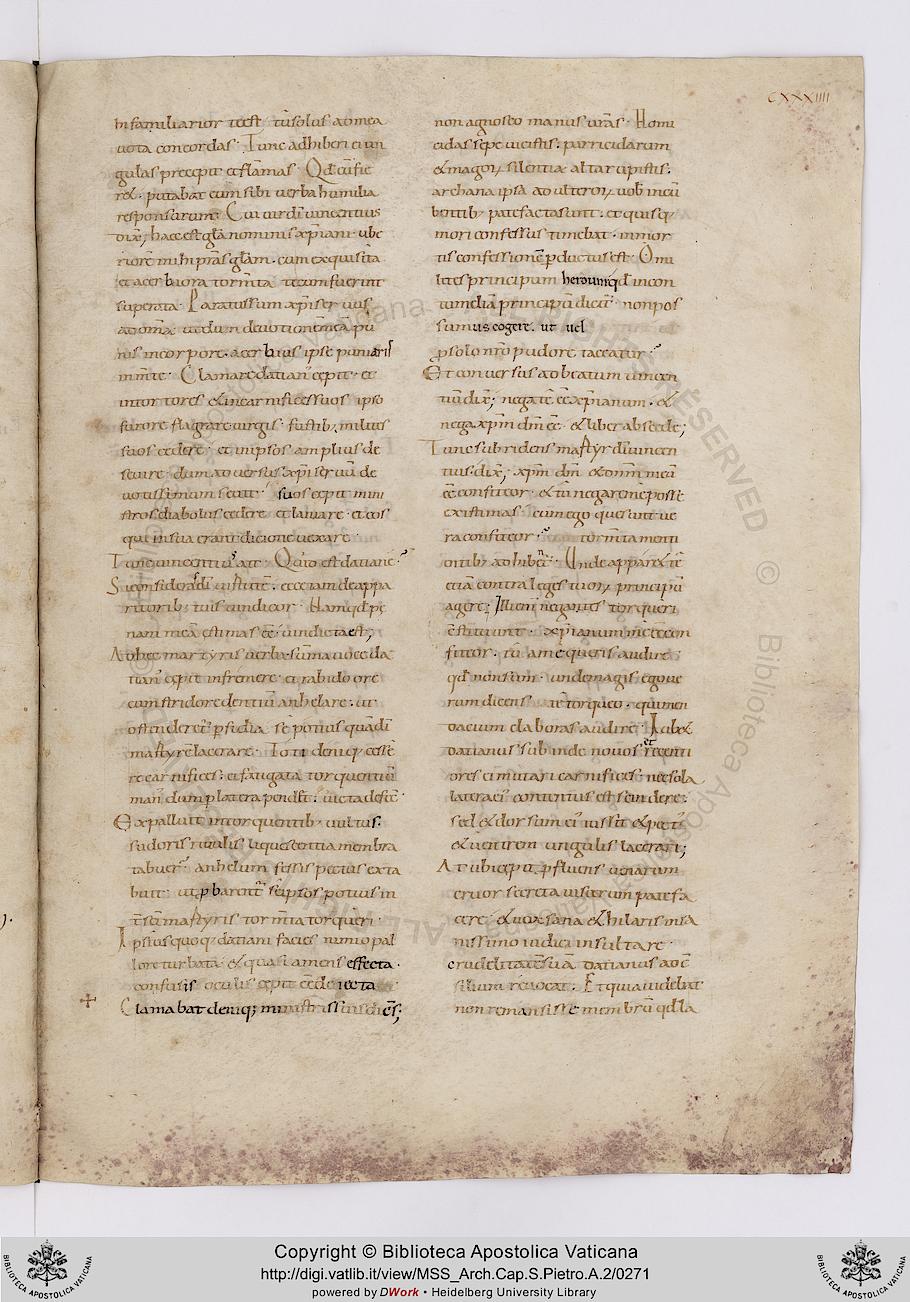 CXXXIIII
infamiliarior tu est tu solus ad mea
uota concordas · Tunc adhiberi ei un
gulas precepit et flamas · Qd cu fie
ret · putabat eum sibi uerba humilia
responsurum · Cui uir di uincentius
dix; haec est gla nominis xpiani · ube
riore mihi pras glam · cum exquisita
et acerbiora tormta tecum fuerint
superata · Paratissum xpi ser uus
ad oma
nis in corpore · acerbius ipse puniaris
in mte · Clamare datian cepit · et
intortores et in carnifices suos ipso
furore flagrare uirgis · fustib; milites
suos cedere · et in ipsos amplius de
seuire · dum aduersus xpi seruu de
uotissimum seuit · suos cepit mini
stros diabolus cedere et laniare · et eos
qui in sua erant dicione uexare ·
Tunc uincentius ait · Quid est datiane ?
Si considerandi
ritorib; tuis uindicor · Nam qd pe
nam mea estimas ee · uindicta est;
Ad hec martyris uerba · suma uoce da
tian cepit infremere · et rabido ore
cum stridore dentiu anhelare · ut
ostenderet pfidia · se potius qua di
martyre lacerare · Toti deniq; cesse
re carnifices · et faugata torquentiu
man dum p latera pendet · uicta defec ·
Expalluit in torquentib; uultus ·
sudoris riuulis liquescentia membra
tabuer · anhelum fessis pectus exta
buit · ut pbarent se ipsos potius in
t sci martyris tormta torqueri ·
Ipsius quoq; datiani facies nimio pal
lore turbata · et quasi amens effecta ·
confusis oculis cepit eede iecta
Clamabat deniq; ministris suis dices;
non agnosco manus uras · Homi
cidas sepe uicistis · parricidarum
et magor silentia · altar upistis ·
archana ipsa adulteror uob incu
bentib; patefacta sunt · et quisq;
mori confessus timebat · in mor
tis confessione pductus est · O mi
lites principum
tumelia principu dicit · non pos
sumus cogere · ut uel
p solo nro pudore taceatur ?
Et conuersus ad beatum uincen
tiu dix; nega te ee xpianum · et
nega xpm dm ee · et liber abscede;
Tunc subridens martyr di uincen
tius · dix; xpm dm et omm meu
ee confiteor · et tu negare me posse
existimas · cum ego que sunt ue
ra confiteor · tormta menti
entib; adhiben · Unde apparet te
etia contra leges tuor principu
agere; Illi eni negantes torqueri
instituunt · xpianum me ee con
fiteor · tu a me queris audire ·
qd non sum · unde magis ego ue
rum dicens a te torqueo · qui men
dacium elaboras audire · Iubet
datianus subinde nouos et recenti
ores ei mutari carnifices · nec sola
latera ei contentus est scindere ·
sed et dorsum ei iussit et pect
et uentrem ungulis lacerari;
At ubi cepit pfluens uenarum
cruor secreta uiscerum patefa
cere · et uox sana et hilaris insa
nissimo iudici insultare ·
crudelitate sua datianus ad c
silium reuocat · Et quia uidebat
non remansisse membru qd la
RIGHTS RESERVED
© Biblioteca Apostolica Vaticana
BIBLIOTECA APOSTOLICA VATICANA
Copyright © Biblioteca Apostolica Vaticana
http://digi.vatlib.it/view/MSS_Arch.Cap.S.Pietro.A.2/0271
powered by DWork • Heidelberg University Library
BIBLIOTECA APOSTOLICA VATICANA